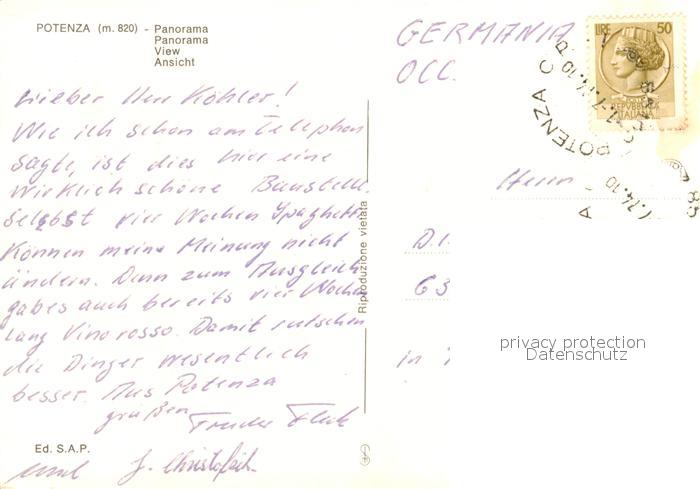 POTENZA (m. 820) - Panorama
Panorama
View
Ansicht
Lieber Herr Köhler!
Wie ich schon am Telephon
sagte, ist dies hier eine
wirklich schöne Baustelle.
Selbst vier Wochen Spaghetti
können meine Meinung nicht
ändern. Denn zum Ausgleich
gabes auch bereits vier Wochen
lang Vino rosso. Damit rutschen
die Dinger wesentlich
besser. Aus Potenza
grüßen
und J.
Ed. S.A.P.
Riproduzione vietata
GERMANIA
OCC.
LIRE 50
REPVBBLICA
ITALIANA
POTENZA C.P.
Herrn
D.I.
63
in
privacy protection
Datenschutz